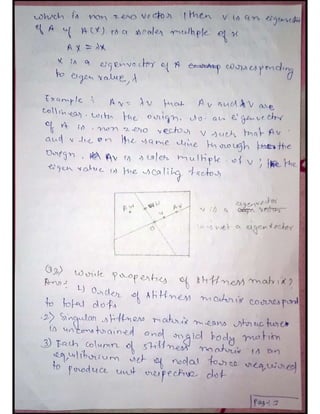 which is non zero vector, then v is an eigenvector
of A if A(x) is a scaler multiple of x
Ax = λx
x is a eigenvector of A corresponding
to eigen value, λ
Example : Av = λv that Av and λv are
collinear with the origin. so an eigenvector
of A is non zero vector v such that Av
and v lie on the same line through the
origin. Av is scaler multiple of v ; the
eigen value is the scaling factor
Aw w v Av
0
v is a eigenvector
w is not a eigenvector
Q2) write properties of stiffness matrix?
Ans: 1) Order of stiffness matrix correspond
to total dofs
2) Singular stiffness matrix means structure
is unconstrained and rigid body motion
3) Each column of stiffness matrix is an
equilibrium set of nodal force required
to produce unit respective dof
Page: 2